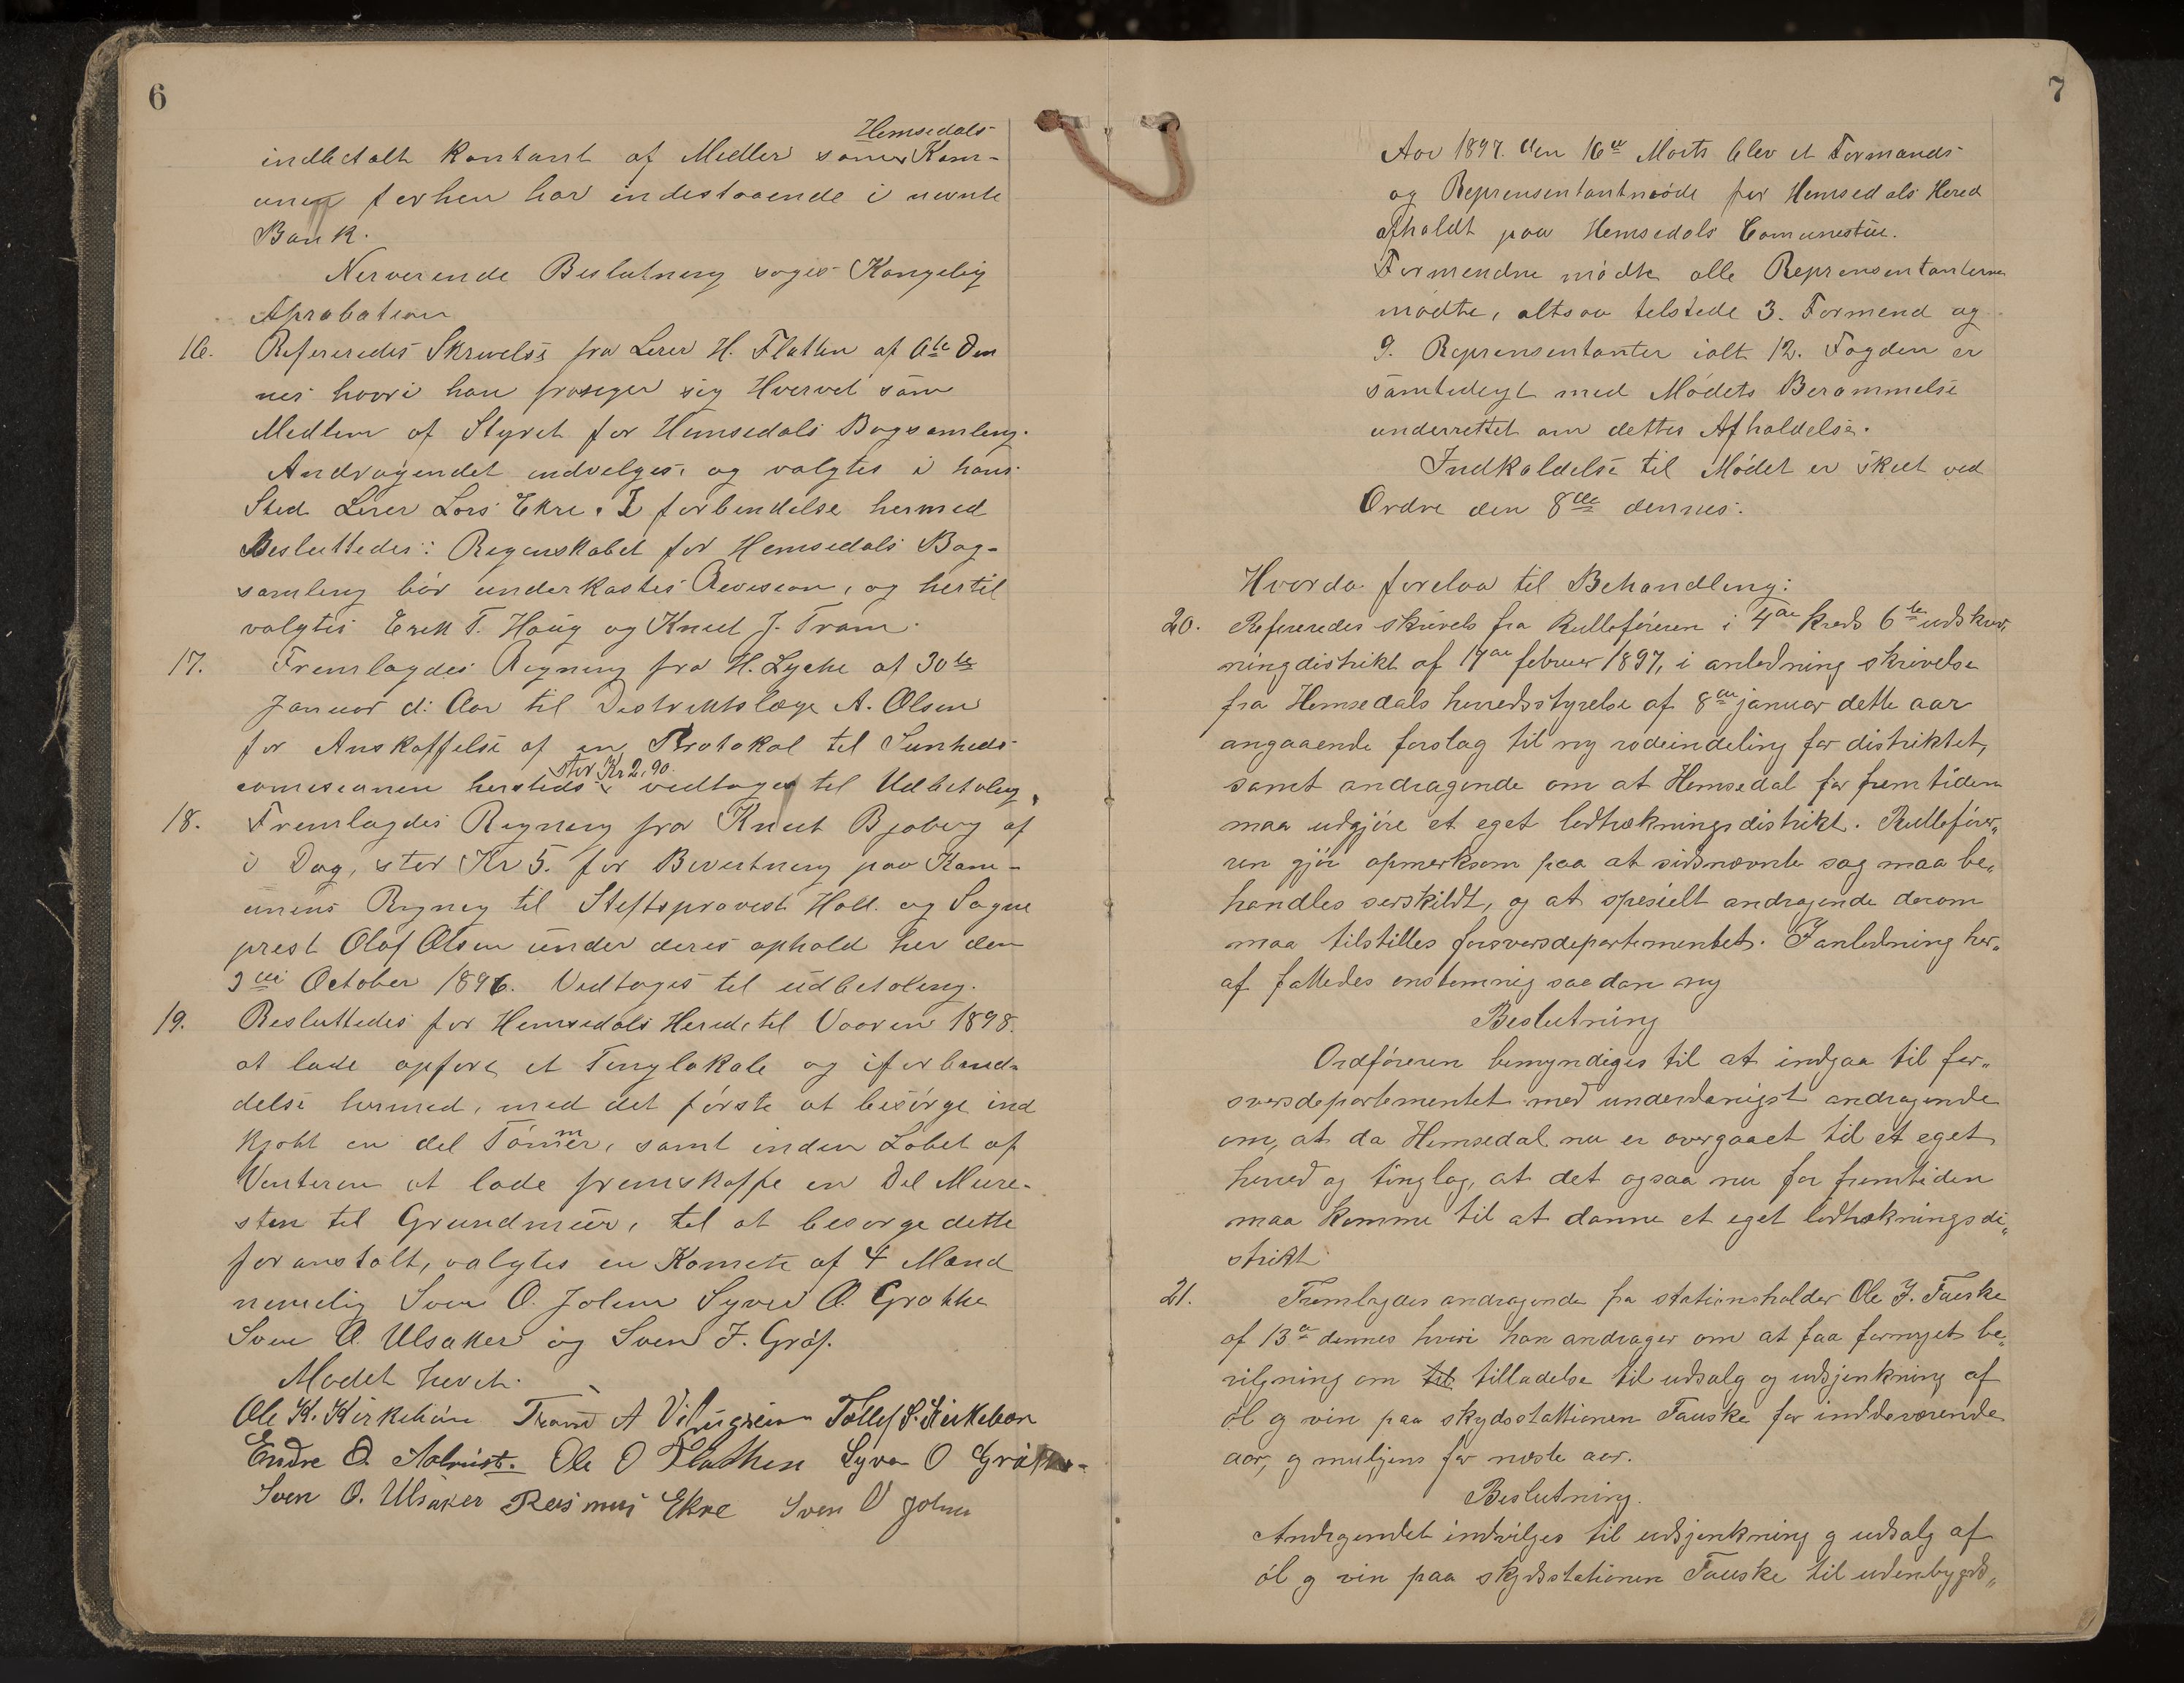 6
Hemsedals
indbetalt kontant af Midler som Kom-
unen forhen har indestaaende i nevnte
Bank.
Nerverende Beslutning søges Kongelig
Aprobation
16. Refereredes Skrivelse fra Lerer H. Flatten af 6te Den
nes hvori han frasiger sig Hvervet som
Medlem af Styret for Hemsedals Bogsamling.
Andragendet indvelges, og valgtes i hans
Sted Lerer Lars Ekre. I forbindelse hermed
Besluttedes: Regnskabet for Hemsedals Bog-
samling bør underkastes Revision, og hertil
valgtes Erik T. Haug og Knut J. Tram.
17. Fremlagdes Regning fra H. Lyche af 30te
Januar d: Aar til Distriktslæge A. Olsen
for Anskaffelse af en Protokol til Sunheds
stor Kr 2,90.
comisionen hersteds vedtoges til Udbetaling.
18. Fremlagdes Regning fra Knut Bjøberg af
i Dag, stor Kr 5. for Bevertning paa Kom-
unens Regning til Stiftsprovest Hall. og Sogne
prest Olaf Olsen under deres ophold her den
3die October 1896. Vedtoges til udbetaling.
19. Besluttedes for Hemsedals Hered, til Vaaren 1898.
at lade opføre et Tinglokale og i forbind-
delse hermed, med det første at besørge ind
kjøbt en del Tømmer, samt inden Løbet af
Vinteren at lade fremskaffe en Del Mure-
sten til Grundmur, til at besørge dette
foranstalt, valgtes en Komete af 4 Mand
nemelig Sven O. Jolen Syver O. Grøtte
Sven O. Ulsaker og Sven J. Grøf.
Mødet hevet.
Ole K. Kirkebøn Trond A Viljugrein Tollef S. Kirkebøn
Endre O. Aalrust. Ole O Flathen Syver O Grøtte
Sven O. Ulsaker Rasmus Ekre Sven O Jolen
7
Aar 1897. den 16de Marts blev et Formands
og Reprensentantmøde for Hemsedals Hered
afholdt paa Hemsedals Comunestue.
Formendne mødte alle Reprensentanterne
mødte, altsaa telstede 3. Formend og
9. Reprensentanter ialt 12. Fogden er
samtedigt med Mødets Berammelse
underrettet om dettes Afholdelse.
Indkaldelse til Mødet er skeet ved
Ordre den 8de dennes.
Hvorda forelaa til Behandling:
20. Refereredes skrivels fra Rulleføreren i 4de kreds 6te udskriv,
ningdistrikt af 19de februer 1897, i anledning skrivelse
fra Hemsedals herredsstyrelse af 8de januar dette aar
angaaende forslag til ny rodeindeling for distriktet,
samt andragende om at Hemsedal for fremtiden
maa udgjøre et eget lodtrækningsdistrikt. Rullefører„
ren gjør opmerksom paa at sidsnævnte sag maa be„
handles serskildt, og at spesielt andragende derom
maa tilstilles forsversdepartementet. I anledning her„
af fattedes enstemnig saadan ny
Beslutning
Ordføreren bemyndiges til at indgaa til for„
sversdepartementet med underdanigst andragende
om, at da Hemsedal nu er overgaaet til et eget
herred og tinglag, at det ogsaa nu for fremtiden
maa komme til at danne et eget lodtrækningsdi„
strikt
21. Fremlagdes andragende fra stationsholder Ole J. Fauske
af 13de dennes hvori han andrager om at faa fornyet be„
vilgning om til tilladelse til udsalg og udsjenkning af
øl og vin paa skydsstationen Fauske for inddeværende
aar, og muligens for næste aar.
Beslutning.
Andragendet indvilges til udsjenkning og udsalg af
øl og vin paa skydsstationen Fauske til udenbygds„